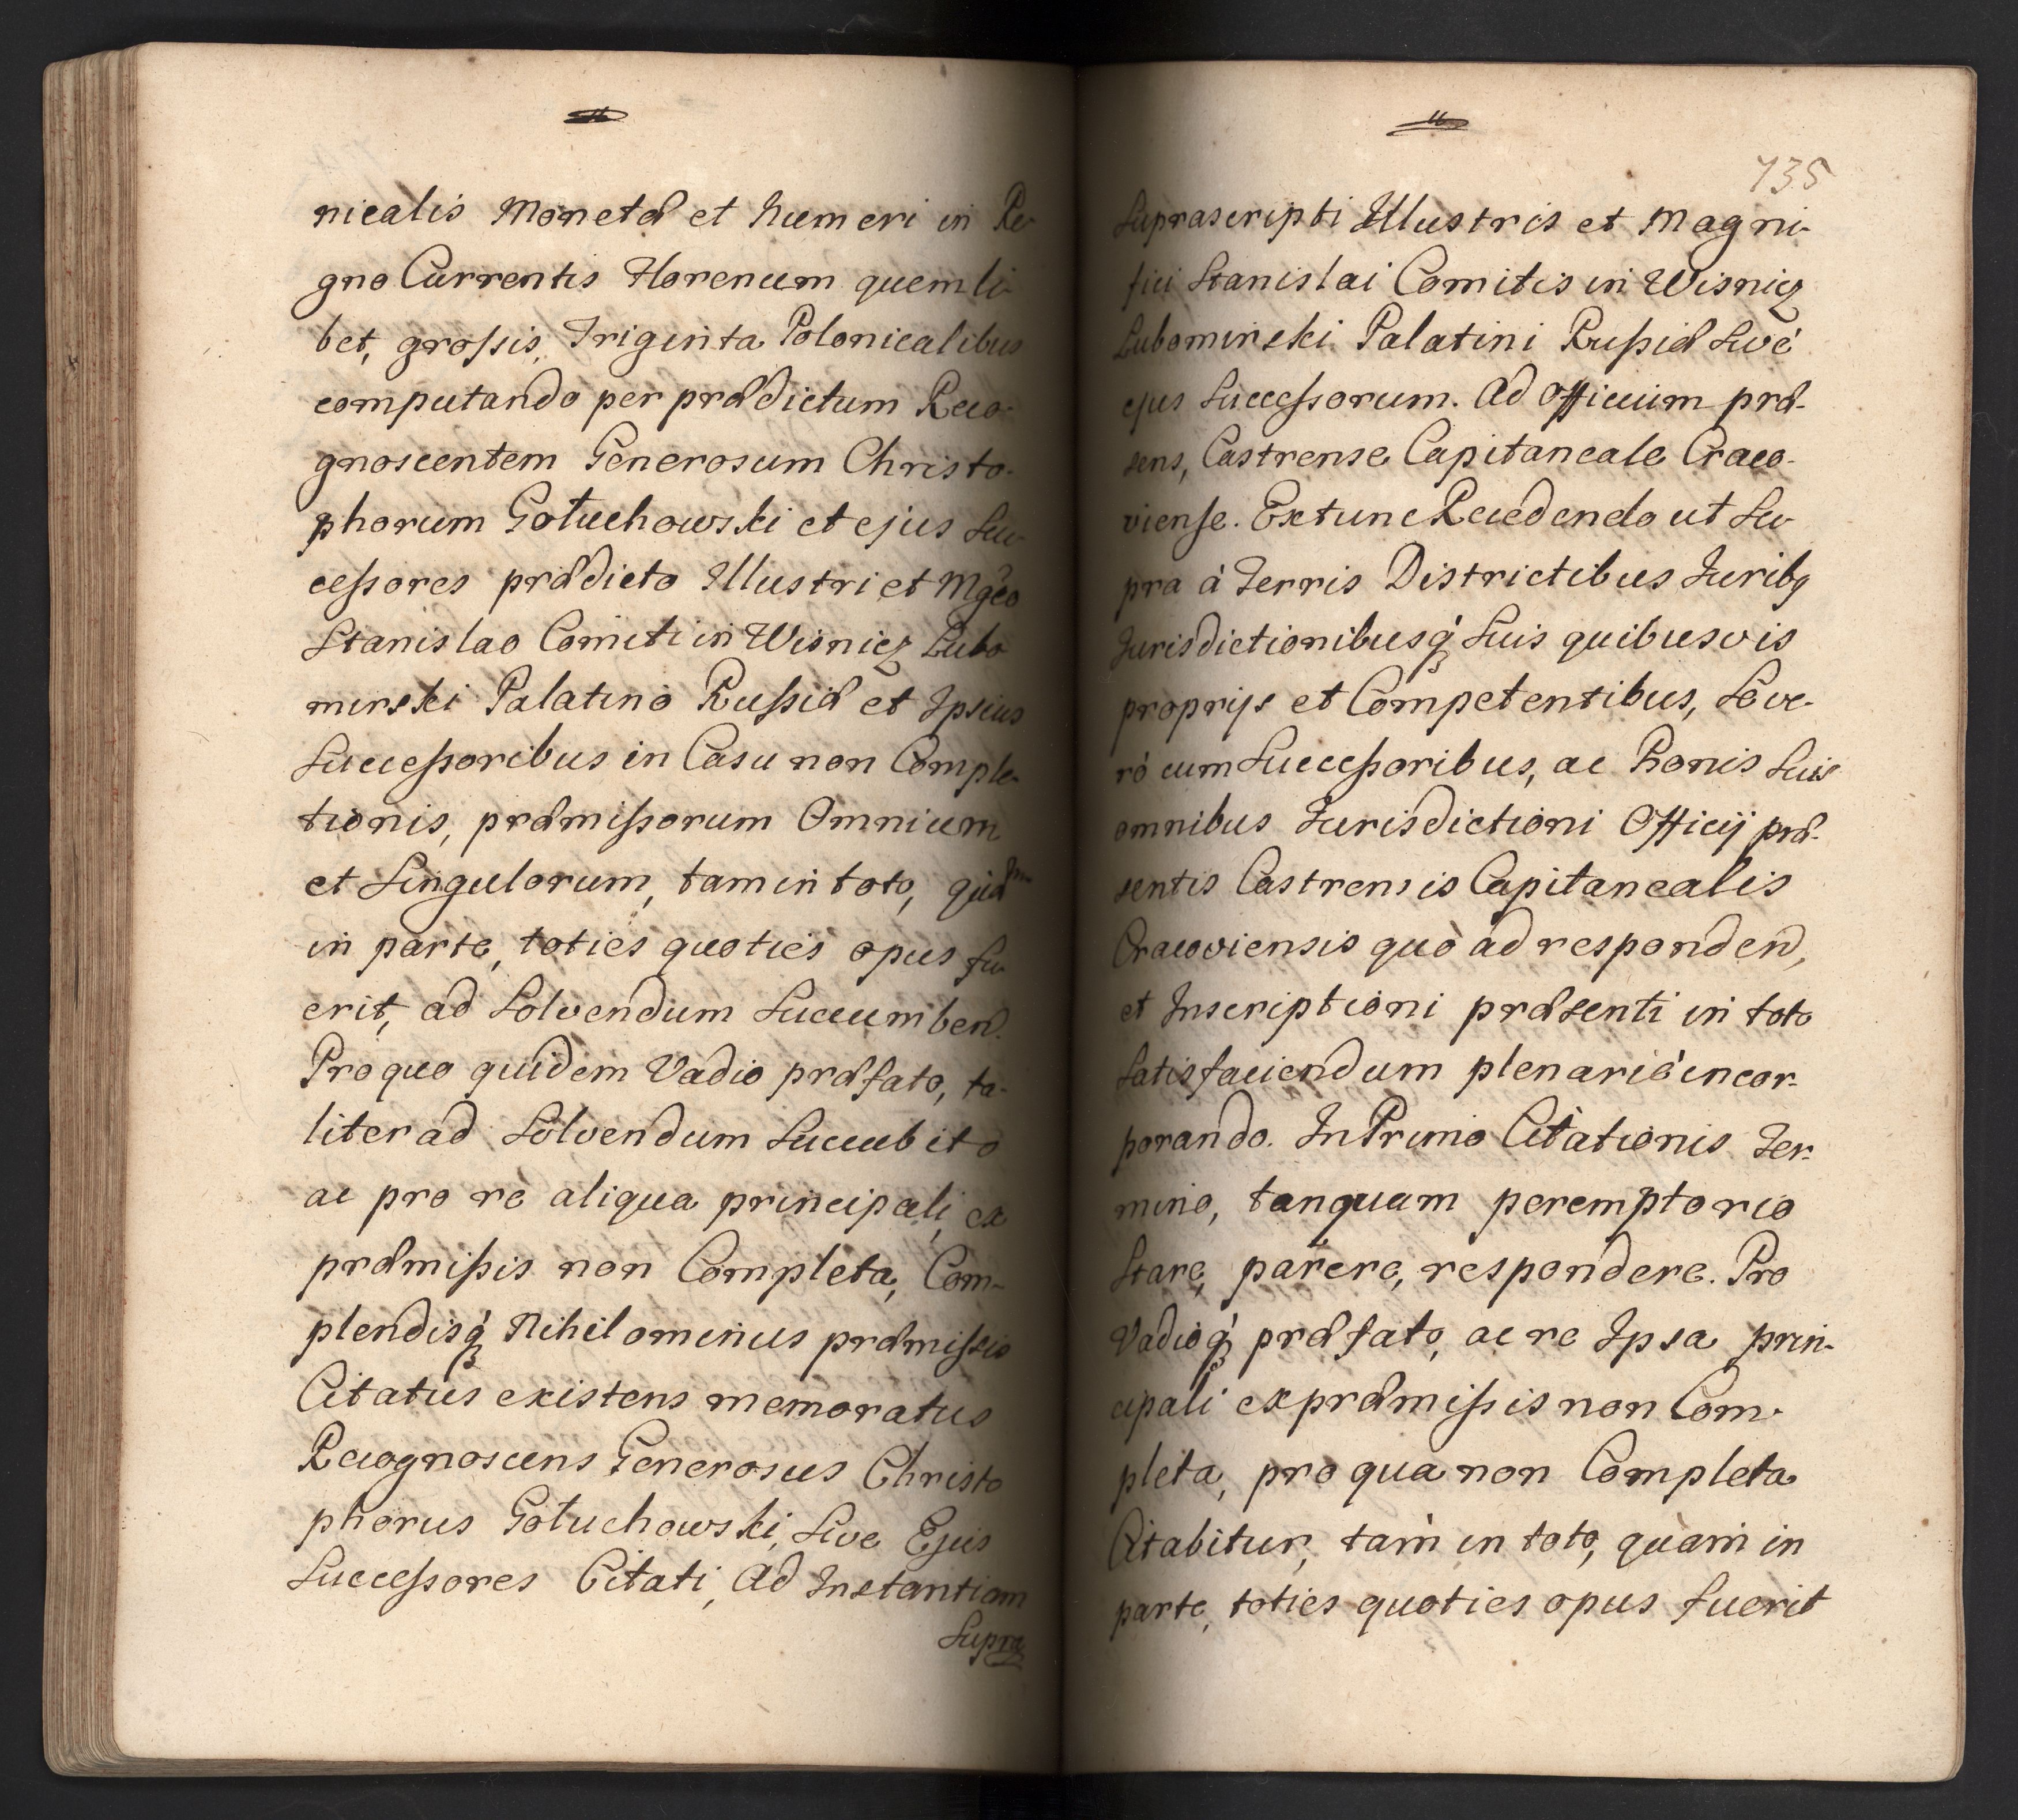 nicalis Monetæ et Numeri in Re-
gno Currentis Florenum quemli-
bet, grossis, Triginta Polonicalibus
computando per prædictum Reco-
gnoscentem Generosum Christo-
phorum Gołuchowski et ejus Suc-
cessores prædicto Illustri et Mgco
Stanislao Comiti in Wisnicz Lubo
mirski Palatino Russiæ et Ipsius
Successoribus in Casu non Comple-
tionis, præmissorum Omnium
et Singulorum, tam in toto, quam
in parte, toties quoties opus fu-
erit, ad Solvendum Succumben.
Pro quo quidem Vadio præfato, ta-
liter ad Solvendum Succubito
ac pro re aliqua principali, ex
præmissis non Completa, Com-
plendisq́ Nihilominus præmissis
Citatus existens memoratus
Recognoscens Generosus Christo
phorus Gołuchowski, Sive Ejus
Successores Citati, Ad Instantiam
Supra
735
Suprascripti Illustris et Magni-
fici Stanislai Comitis in Wisnicz
Lubomirski Palatini Russiæ Sivè
ejus Successorum. Ad Officium præ-
sens, Castrense Capitaneale Craco-
viense. Extunc Recedendo ut Su-
pra à Terris Districtibus Juribq
Jurisdictionibusq́ Suis quibusvis
proprijs et Competentibus, Seve-
rò cum Successoribus, ac Bonis Suis
omnibus Jurisdictioni Officij præ-
sentis Castrensis Capitanealis
Cracoviensis quò ad responden,
et Inscriptioni præsenti in toto
Satisfaciendum plenariè incor-
porando. In Primo Citationis Ter-
mino, tanquam peremptorio
Stare, parere, respondere. Pro
Vadioq́ præfato, ac re Ipsa prin-
cipali ex præmissis non Com-
pleta, pro qua non Completa
Citabitur, tam in toto, quam in
parte, toties quoties opus fuerit